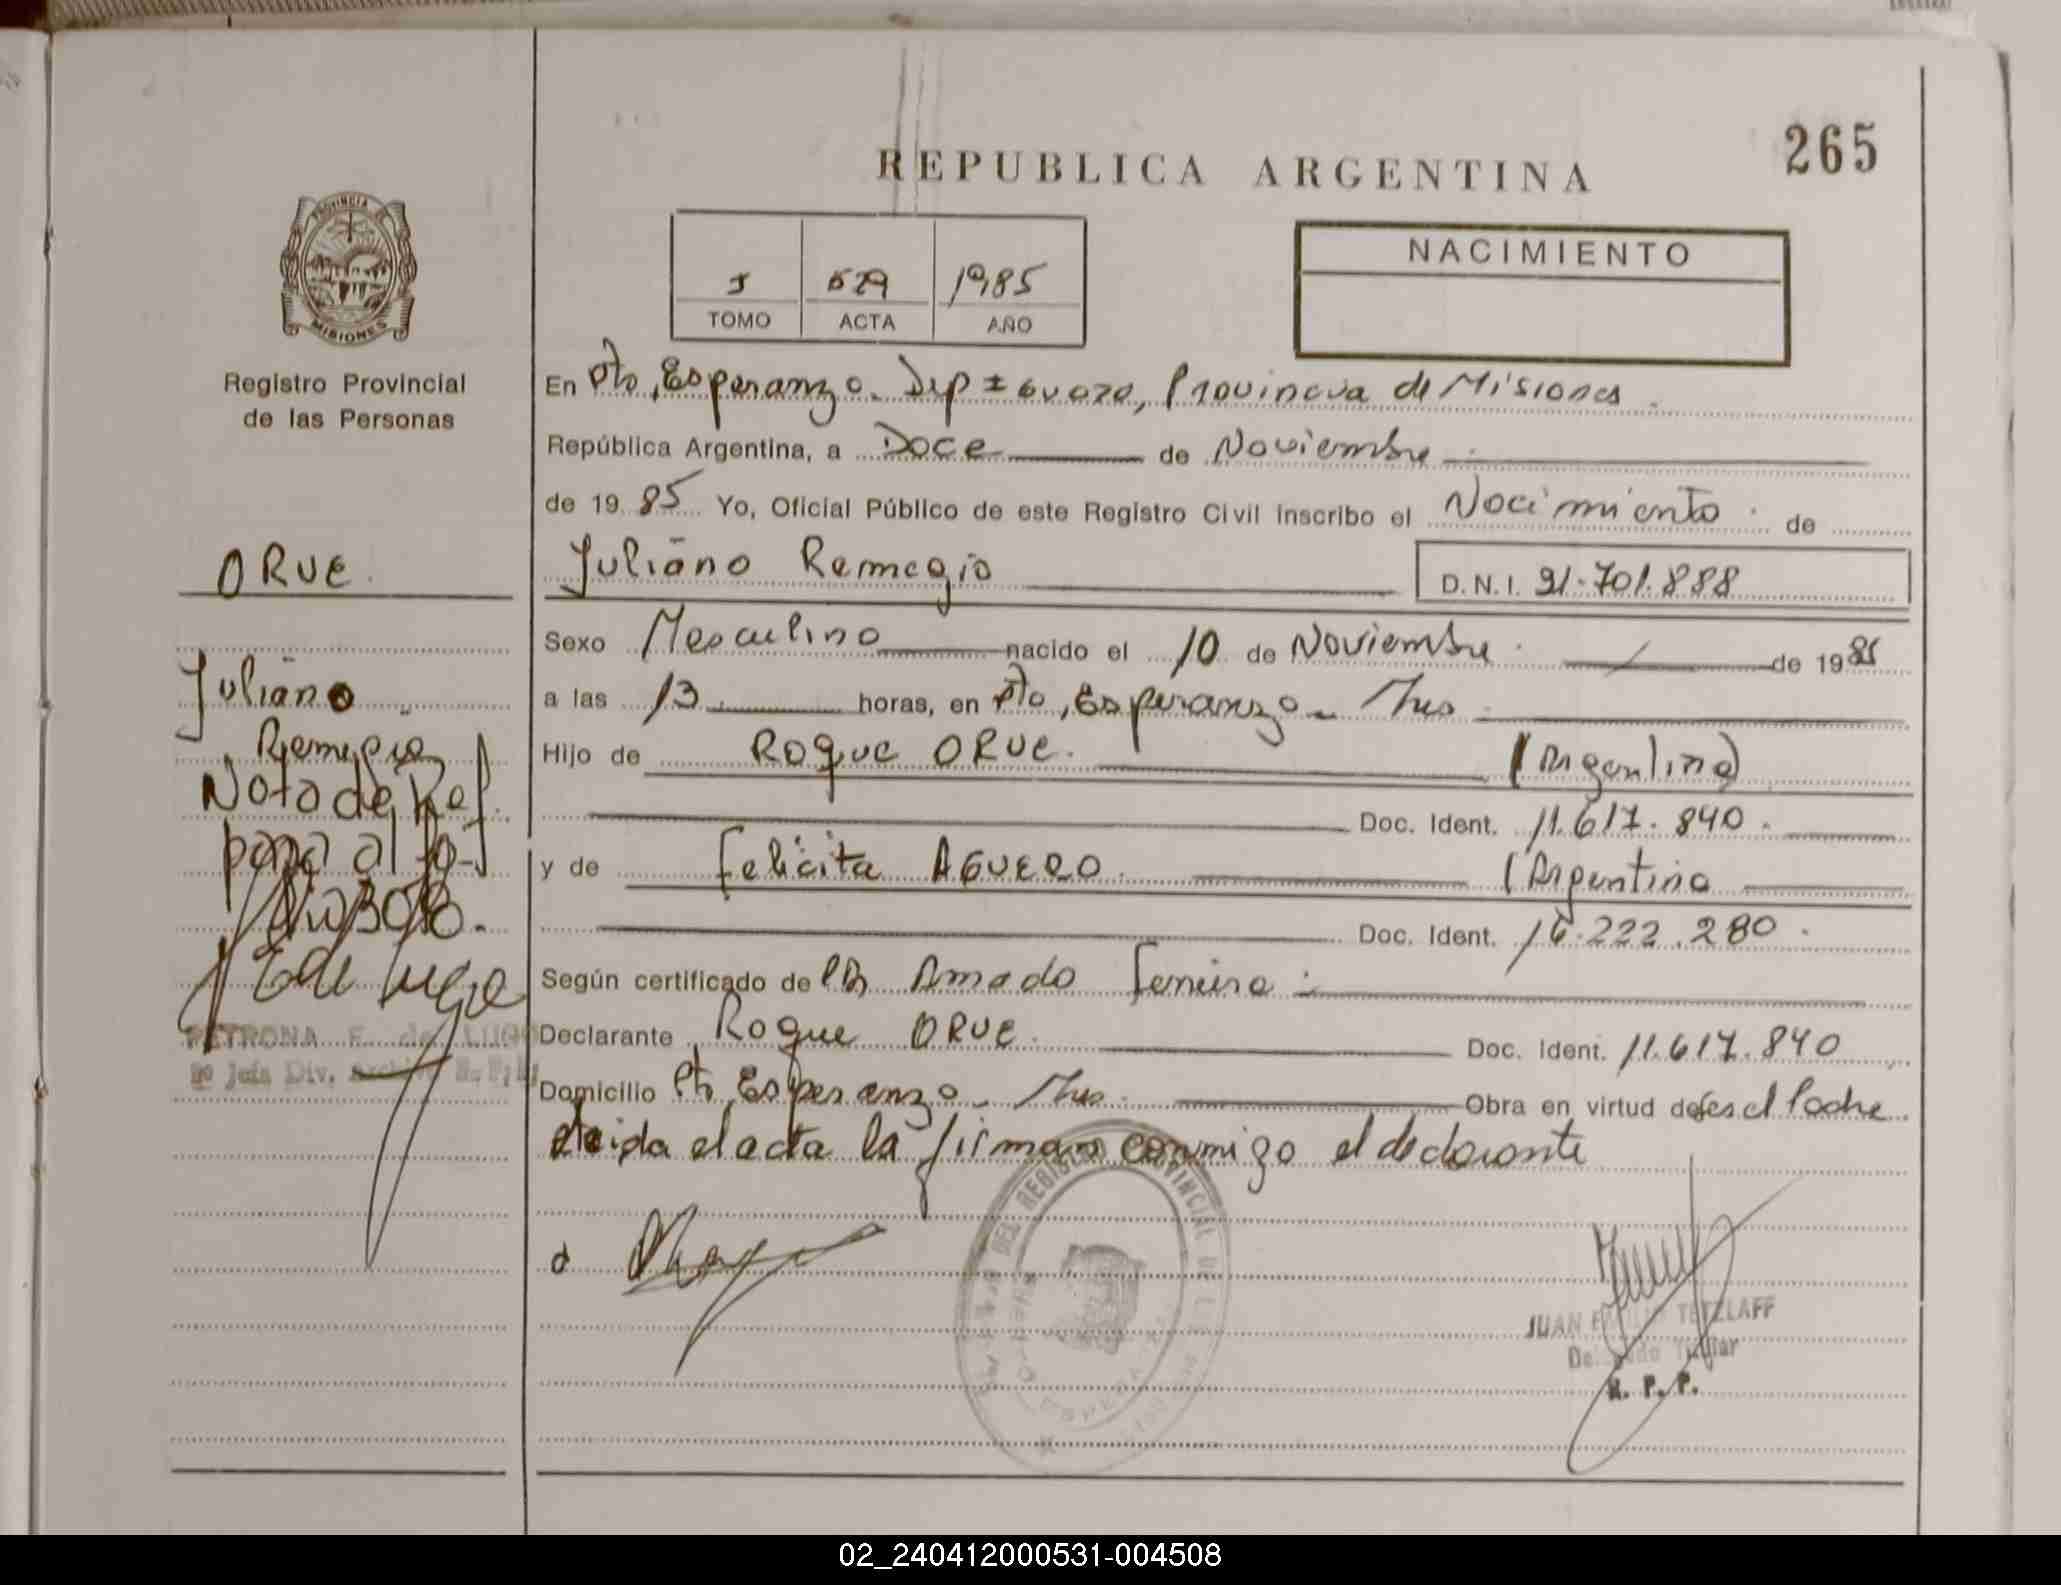 265
REPUBLICA ARGENTINA
PROVINCIA DE
MISIONES
Registro Provincial
de las Personas
529 1985
TOMO ACTA AÑO
NACIMIENTO
En Pto, Esperanza. Dep Iguazu, Provincia de Misiones.
República Argentina, a Doce de Noviembre
de 1985 Yo, Oficial Público de este Registro Civil inscribo el Nacimiento de
Juliano Remegio D.N.I. 31.701.888
Sexo Masculino nacido el 10 de Noviembre de 1985
a las 13 horas, en Pto, Esperanza - Mnes
Hijo de Roque ORUE. (Argentino)
Doc. Ident. 11.617.840.
y de Felicita AGUERO. (Argentina
Doc. Ident. 16.222.280.
Según certificado de Amado
Declarante Roque ORUE. Doc. Ident. 11.617.840
Domicilio Pto Esperanza - Mnes. Obra en virtud de ser el Padre
leida el acta la firman conmigo el declarante
ORUE.
Juliano
Remegio
Nota de Ref.
para al
PETRONA E. de LUGO
2º Jefa Div. Archivo R.P.P.
JUAN EMILIO TETZLAFF
Delegado Titular
R. P. P.
02_240412000531-004508